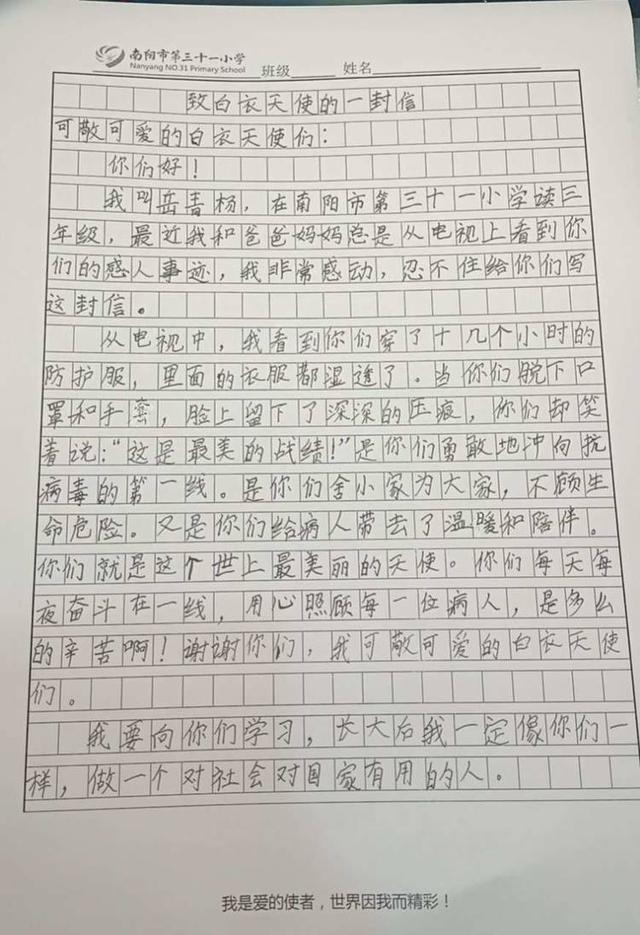 南阳市第三十一小学
Nanyang NO.31 Primary School 班级 姓名
致白衣天使的一封信
可敬可爱的白衣天使们：
你们好！
我叫岳青杨，在南阳市第三十一小学读三
年级，最近我和爸爸妈妈总是从电视上看到你
们的感人事迹，我非常感动，忍不住给你们写
这封信。
从电视中，我看到你们穿了十几个小时的
防护服，里面的衣服都湿透了。当你们脱下口
罩和手套，脸上留下了深深的压痕，你们却笑
着说：“这是最美的战绩！”是你们勇敢地冲向抗
病毒的第一线。是你们舍小家为大家，不顾生
命危险。又是你们给病人带去了温暖和陪伴。
你们就是这个世上最美丽的天使。你们每天每
夜奋斗在一线，用心照顾每一位病人，是多么
的辛苦啊！谢谢你们，我可敬可爱的白衣天使
们。
我要向你们学习，长大后我一定像你们一
样，做一个对社会对国家有用的人。
我是爱的使者，世界因我而精彩！